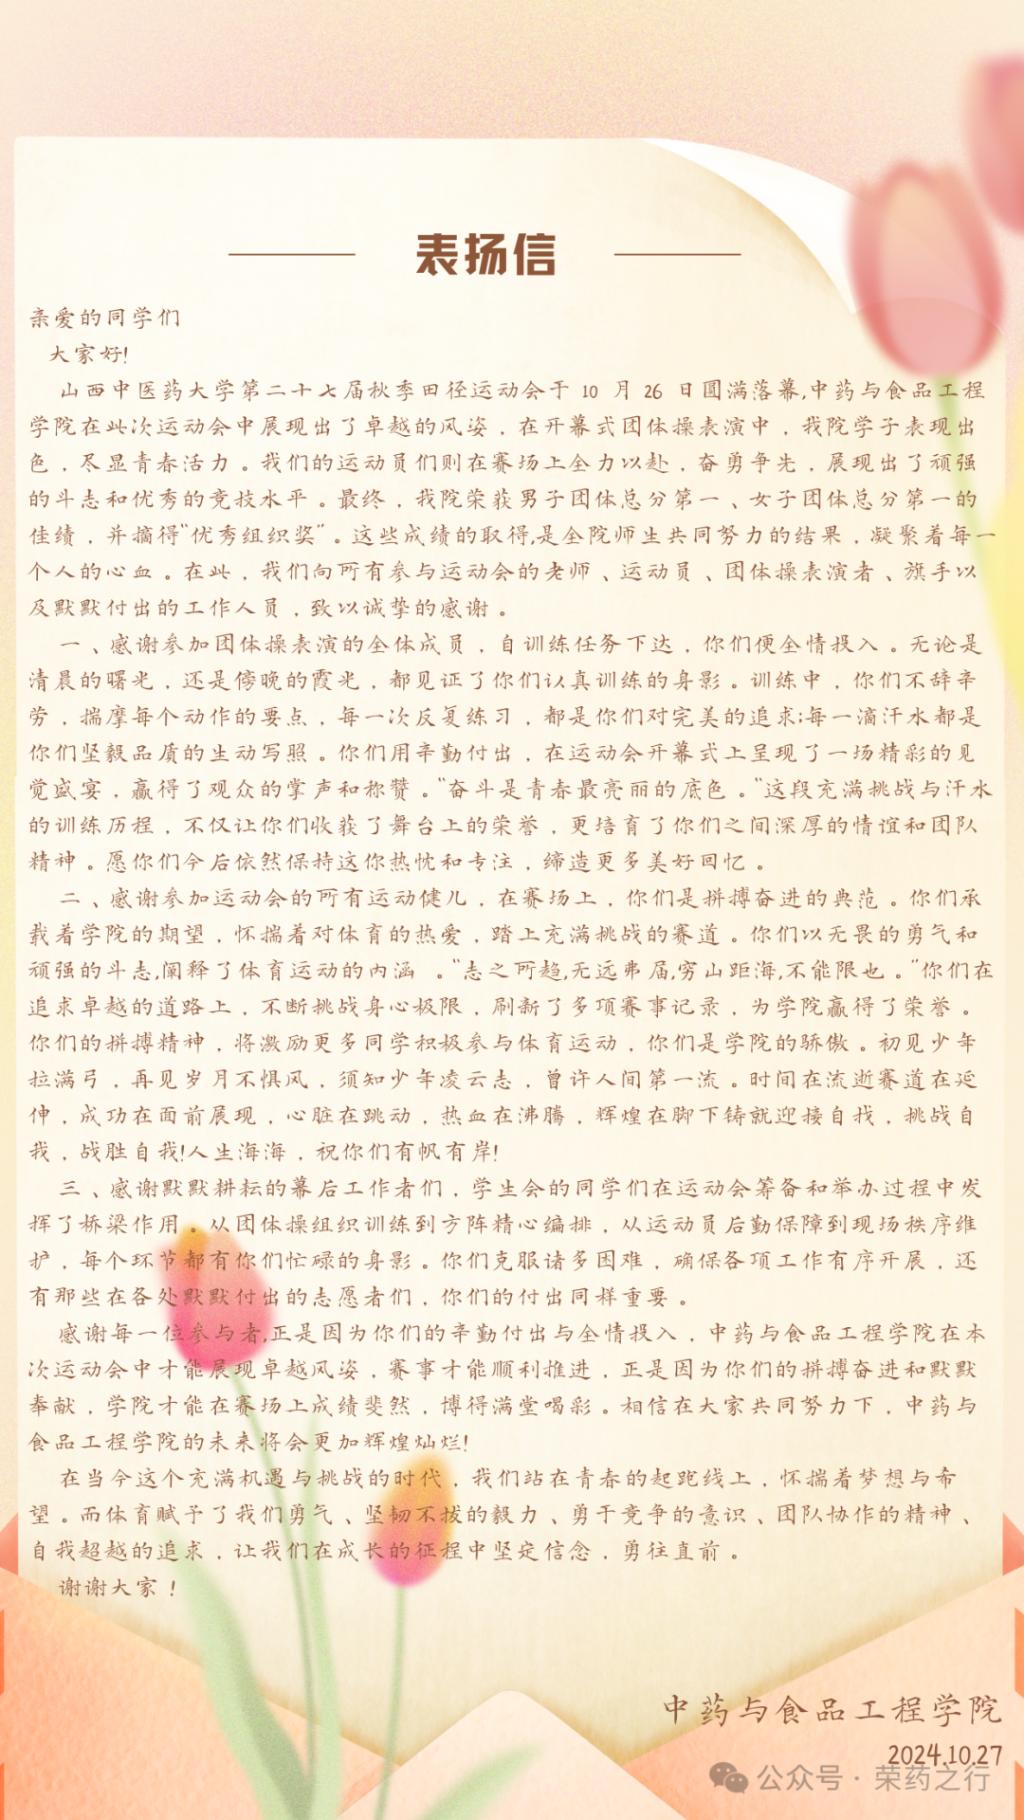 表扬信
亲爱的同学们
大家好!
山西中医药大学第二十七届秋季田径运动会于 10 月 26 日圆满落幕,中药与食品工程
学院在此次运动会中展现出了卓越的风姿，在开幕式团体操表演中，我院学子表现出
色，尽显青春活力。我们的运动员们则在赛场上全力以赴，奋勇争先，展现出了顽强
的斗志和优秀的竞技水平。最终，我院荣获男子团体总分第一、女子团体总分第一的
佳绩，并摘得“优秀组织奖”。这些成绩的取得,是全院师生共同努力的结果，凝聚着每一
个人的心血。在此，我们向所有参与运动会的老师、运动员、团体操表演者、旗手以
及默默付出的工作人员，致以诚挚的感谢。
一、感谢参加团体操表演的全体成员，自训练任务下达，你们便全情投入。无论是
清晨的曙光，还是傍晚的霞光，都见证了你们认真训练的身影。训练中，你们不辞辛
劳，揣摩每个动作的要点，每一次反复练习，都是你们对完美的追求;每一滴汗水都是
你们坚毅品质的生动写照。你们用辛勤付出，在运动会开幕式上呈现了一场精彩的见
觉盛宴，赢得了观众的掌声和称赞。“奋斗是青春最亮丽的底色。“这段充满挑战与汗水
的训练历程，不仅让你们收获了舞台上的荣誉，更培育了你们之间深厚的情谊和团队
精神。愿你们今后依然保持这你热忱和专注，缔造更多美好回忆。
二、感谢参加运动会的所有运动健儿，在赛场上，你们是拼搏奋进的典范。你们承
载着学院的期望，怀揣着对体育的热爱，踏上充满挑战的赛道。你们以无畏的勇气和
顽强的斗志,阐释了体育运动的内涵 。“志之所趋,无远弗届,穷山距海,不能限也。”你们在
追求卓越的道路上，不断挑战身心极限，刷新了多项赛事记录，为学院赢得了荣誉。
你们的拼搏精神，将激励更多同学积极参与体育运动，你们是学院的骄傲。初见少年
拉满弓，再见岁月不惧风，须知少年凌云志，曾许人间第一流。时间在流逝赛道在延
伸，成功在面前展现，心脏在跳动，热血在沸腾，辉煌在脚下铸就迎接自找，挑战自
我，战胜自我!人生海海，祝你们有帆有岸!
三、感谢默默耕耘的幕后工作者们，学生会的同学们在运动会筹备和举办过程中发
挥了桥梁作用。从团体操组织训练到方阵精心编排，从运动员后勤保障到现场秩序维
护，每个环节都有你们忙碌的身影。你们克服诸多困难，确保各项工作有序开展，还
有那些在各处默默付出的志愿者们，你们的付出同样重要。
感谢每一位参与者,正是因为你们的辛勤付出与全情投入，中药与食品工程学院在本
次运动会中才能展现卓越风姿，赛事才能顺利推进，正是因为你们的拼搏奋进和默默
奉献，学院才能在赛场上成绩斐然，博得满堂喝彩。相信在大家共同努力下，中药与
食品工程学院的未来将会更加辉煌灿烂!
在当今这个充满机遇与挑战的时代，我们站在青春的起跑线上，怀揣着梦想与希
望。而体育赋予了我们勇气、坚韧不拔的毅力、勇于竞争的意识、团队协作的精神、
自我超越的追求，让我们在成长的征程中坚定信念，勇往直前。
谢谢大家！
中药与食品工程学院
2024.10.27
公众号·荣药之行